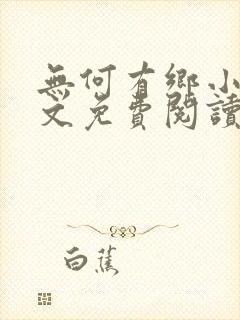 無何有鄉小
文免費閱讀
白蕉